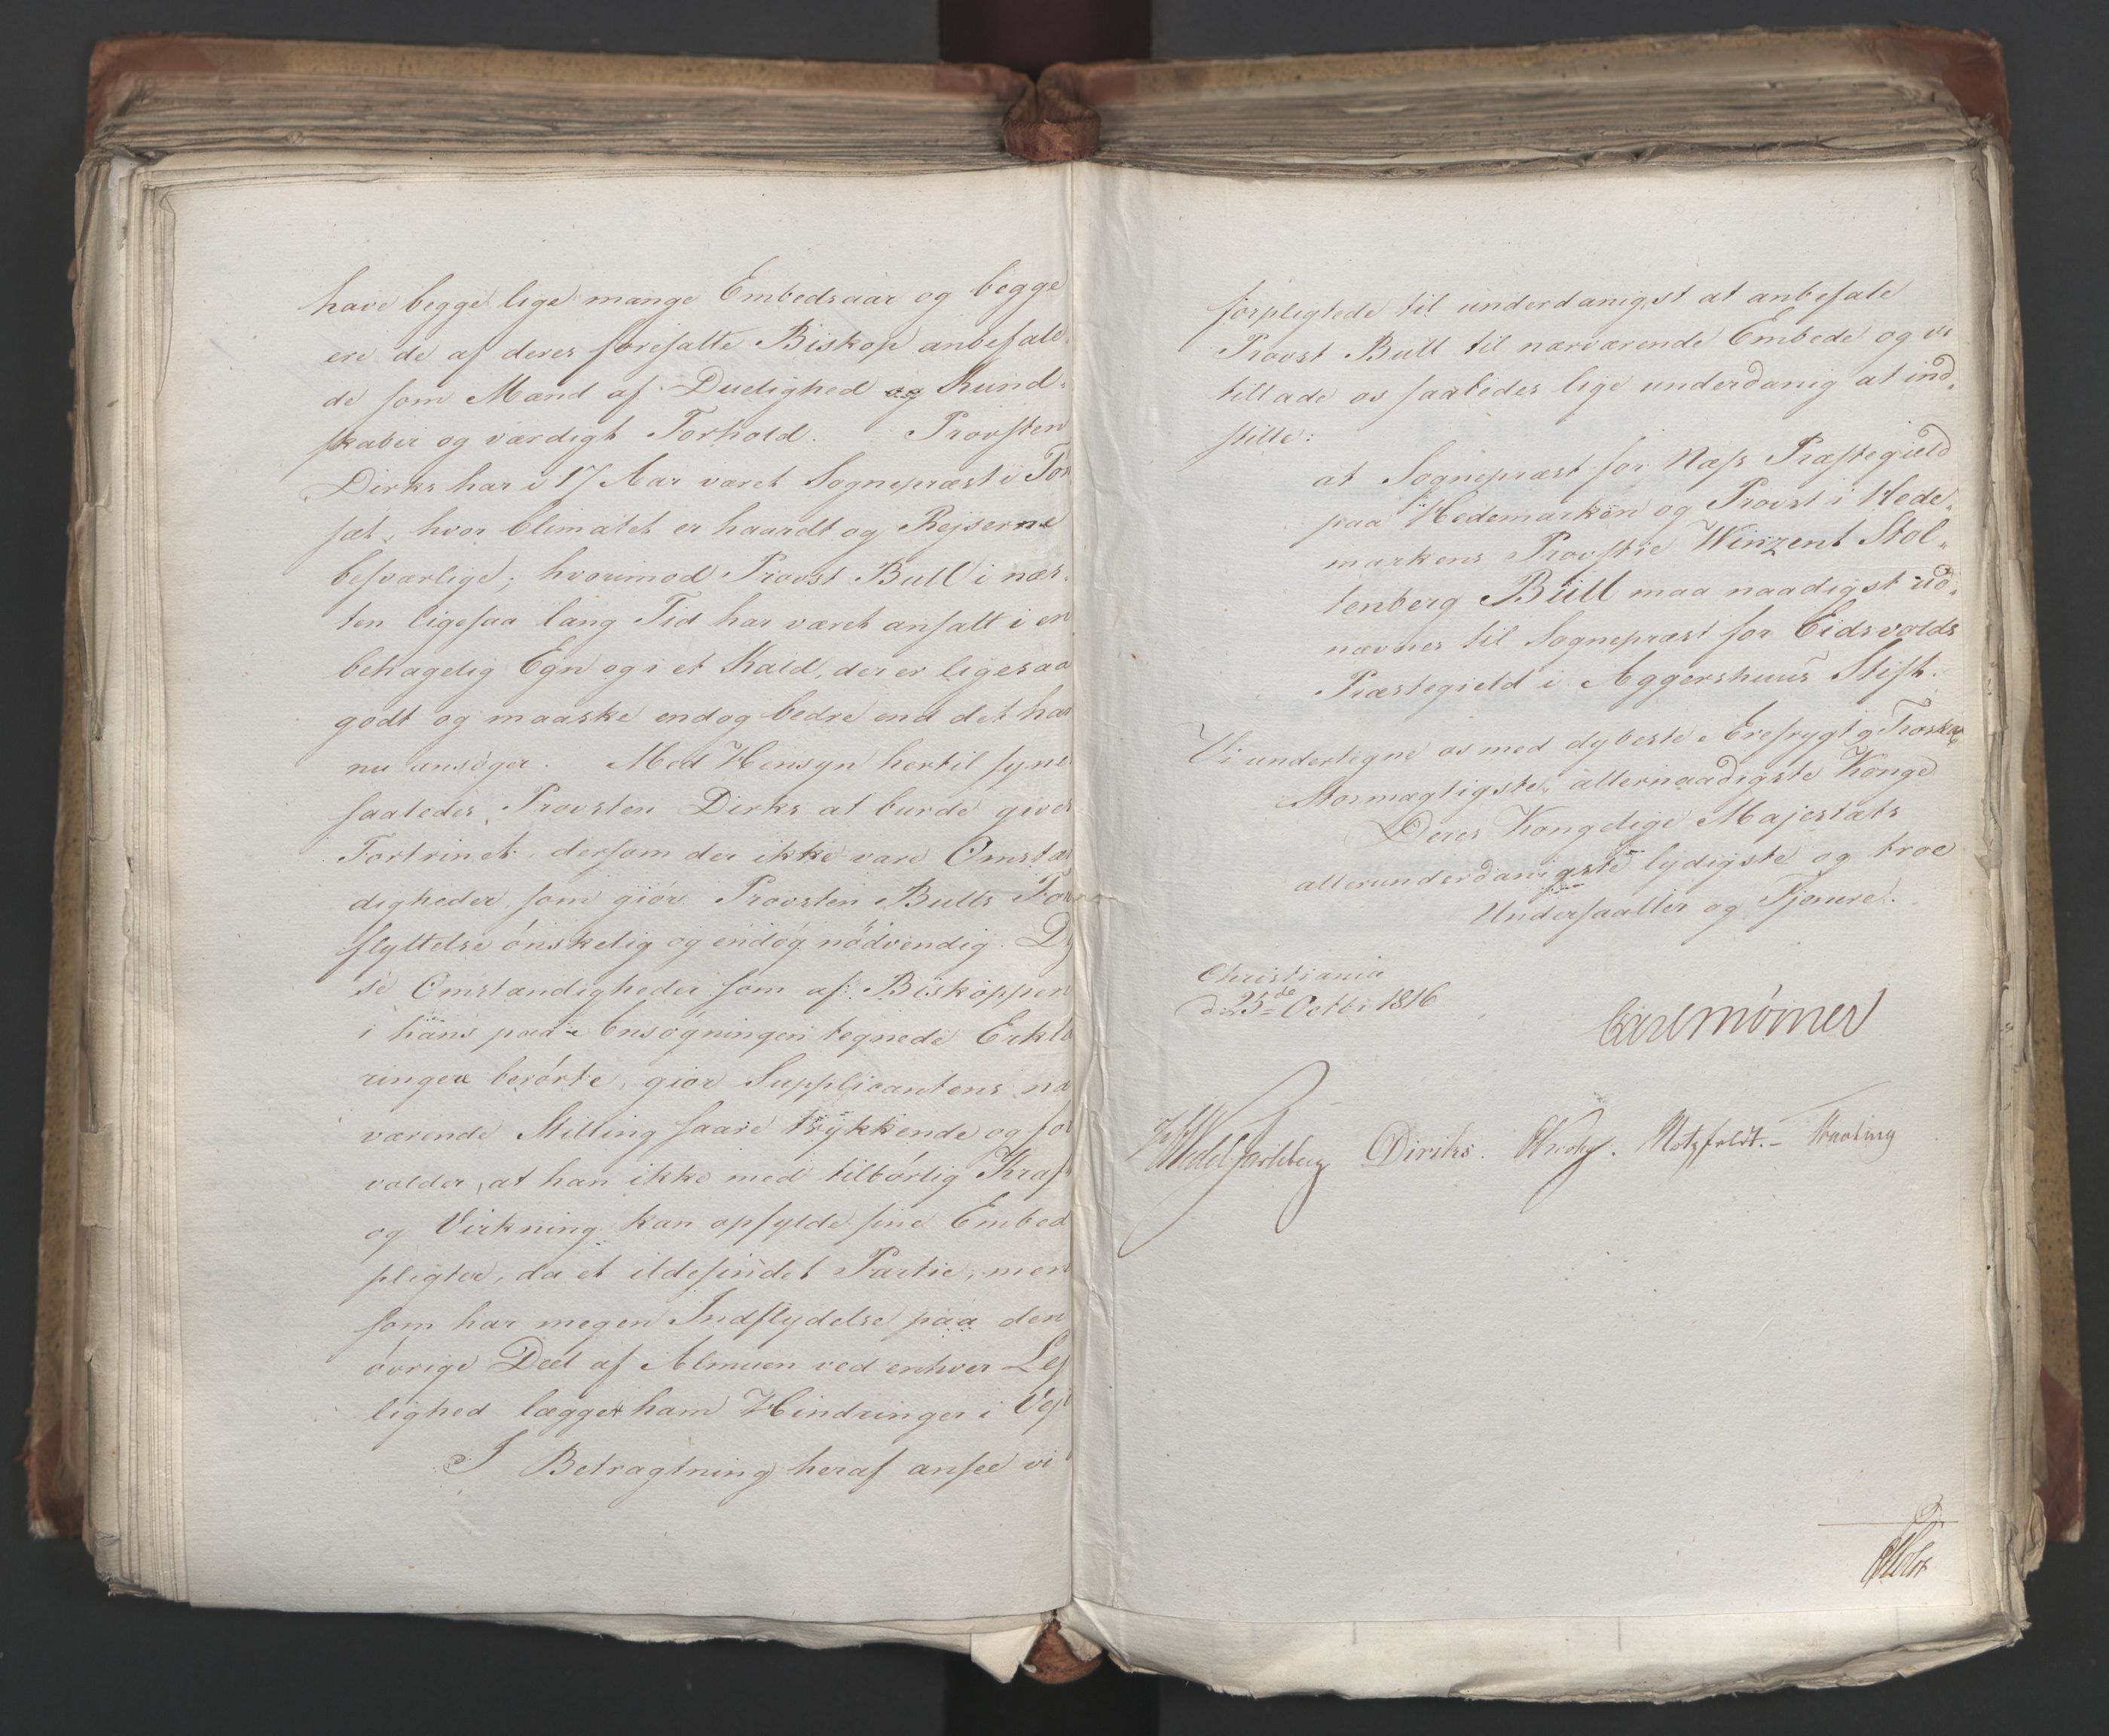 have begge lige mange Embedsaar og begge
ere de af deres foresatte Biskop anbefale
de som Mænd af Duelighed og Kund-
skaber og værdigt Forhold. Provsten
Dirks har i 17 Aar været Sognepræst i Tør
sæt, hvor Climatet er haardt og Rejserne
besværlige; hvorimod Provst Bull i næs-
ten ligesaa lang Tid har været ansatt i en
behagelig Egn og i et Kald, der er ligesaa
godt og maaske endog bedre end det han
nu ansøger. Med Hensyn hertil synes
saaledes Provsten Dirks at burde gives
Fortrinet, dersom der ikke vare Omstæn
digheder som giør Provsten Bulls For
flyttelse ønskelig og endog nødvendig. Di
se Omstændigheder som af Biskoppen
i hans paa Ansøgningen tegnede Erklæ
ringer berørte, giør Supplicantens næ
værende Stilling saare trykkende og for
volder, at han ikke med tilbørlig Kraft
og Virkning kan opfylde sine Embed
pligter, da et ildesindet Partie, men
som har megen Indflydelse paa den
øvrige Deel af Almuen ved enhver Lej
lighed lægger ham Hindringer i Vej
I Betragtning heraf ansee vi
forpligtede til underdanigst at anbefale
Provst Bull til nærværende Embede og vi
tillade os saaledes lige underdanig at ind-
stille:
at Sognepræst for Næss Præstegield
paa Hedemarken og Provst i Hede-
markens Provstie Winzent Stol-
tenberg Bull maa naadigst ud-
nævnes til Sognepræst for Eidsvolds
Præstegield i Aggershuus Stift.
Vi undertegne os med dybeste Ærefrygt og Troskab
Stormægtigste, allernaadigste Konge
Deres Kongelige Majestæts
allerunderdanigste lydigste og troe
Undersaatter og Tjenere.
Christiania
d. 25de Octbr 1816
Carl Mörner
Wedel Jarlsberg Diriks. Krohg. Motzfeldt. -